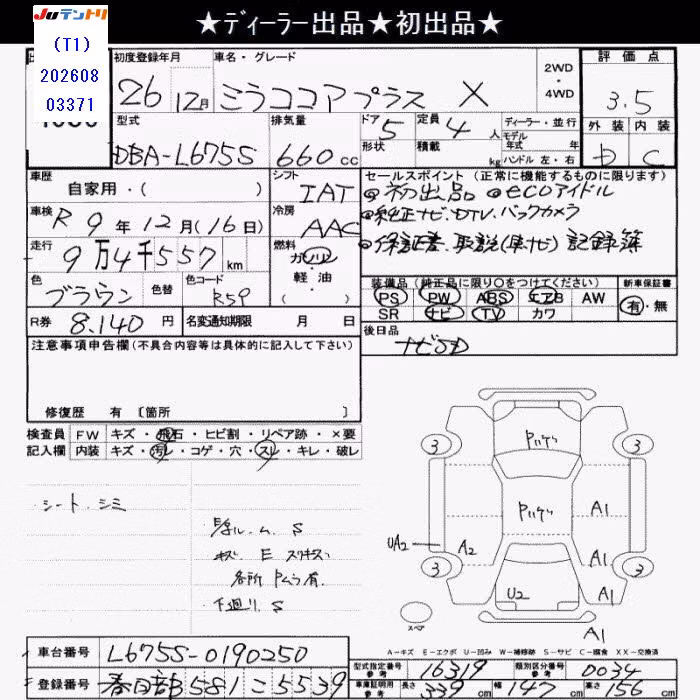 JUテントリ
★ディーラー出品★初出品★
(T1)
202608
03371
初度登録年月
車名・グレード
2WD・4WD
評価点
26 12月 ミラココアプラス X
3.5
型式
排気量
ドア 5
定員 4人
ディーラー・並行
モデル年式 年
外装 内装
DBA-L675S
660cc
形状
積載 kg
ハンドル 左・右
D C
車歴
自家用・( )
シフト
IAT
セールスポイント(正常に機能するものに限ります)
◎初出品 ◎ecoアイドル
車検 R 9年12月(16日)
冷房 AAC
◎純正ナビ.DTV.バックカメラ
走行
9万4千557km
燃料
ガソリン
軽・油
( )
◎保証書.取説(車.ナビ) 記録簿
色
ブラウン
色替
色コード
R59
装備品(純正品に限り○をつけてください)
新車保証書
PS PW ABS エアB AW
有・無
SR ナビ TV カワ
R券 8.140円
名変通知期限 月 日
後日品
ナビSD
注意事項申告欄(不具合内容等は具体的に記入して下さい)
修復歴 有 〔箇所 〕
検査員記入欄
FW キズ・飛石・ヒビ割・リペア跡・×要
内装 キズ・汚レ・コゲ・穴・スレ・キレ・破レ
シート.シミ
各所 Pムラ有.
下廻り.S
3
3
3
3
A1
UA2
A2
A1
U2
A1
A1
スペア
A-キズ E-エクボ U-凹み W-補修跡 S-サビ C-腐食 XX-交換済
車台番号 L675S-0190250
型式指定番号 参考 16319
類別区分番号 参考 0034
登録番号 春日部581こ5539
車庫証明用 参考 長さ 339cm 幅 147cm 高さ 156cm